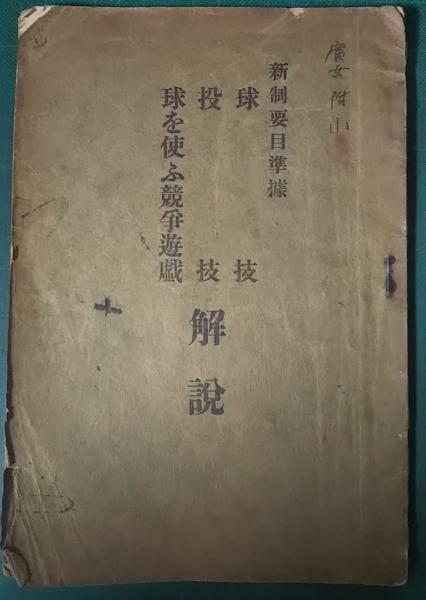 新制要目準據
球技
投技
球を使ふ競爭遊戯
解說
女附小